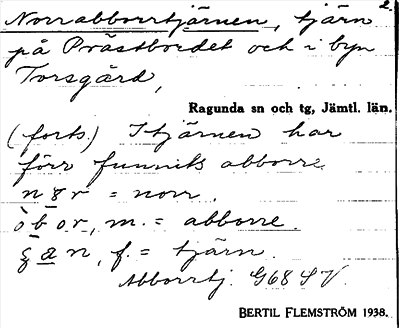 2.
Norrabborrtjärnen, tjärn
på Prästbordet och i byn
Torsgård,
Ragunda sn och tg, Jämtl. län.
(forts.) I tjärnen har
förr funnits abborre.
nɤr = norr.
òbor, m. = abborre.
ʂan, f. = tjärn.
Abborrtj. G68 SV.
BERTIL FLEMSTRÖM 1938.